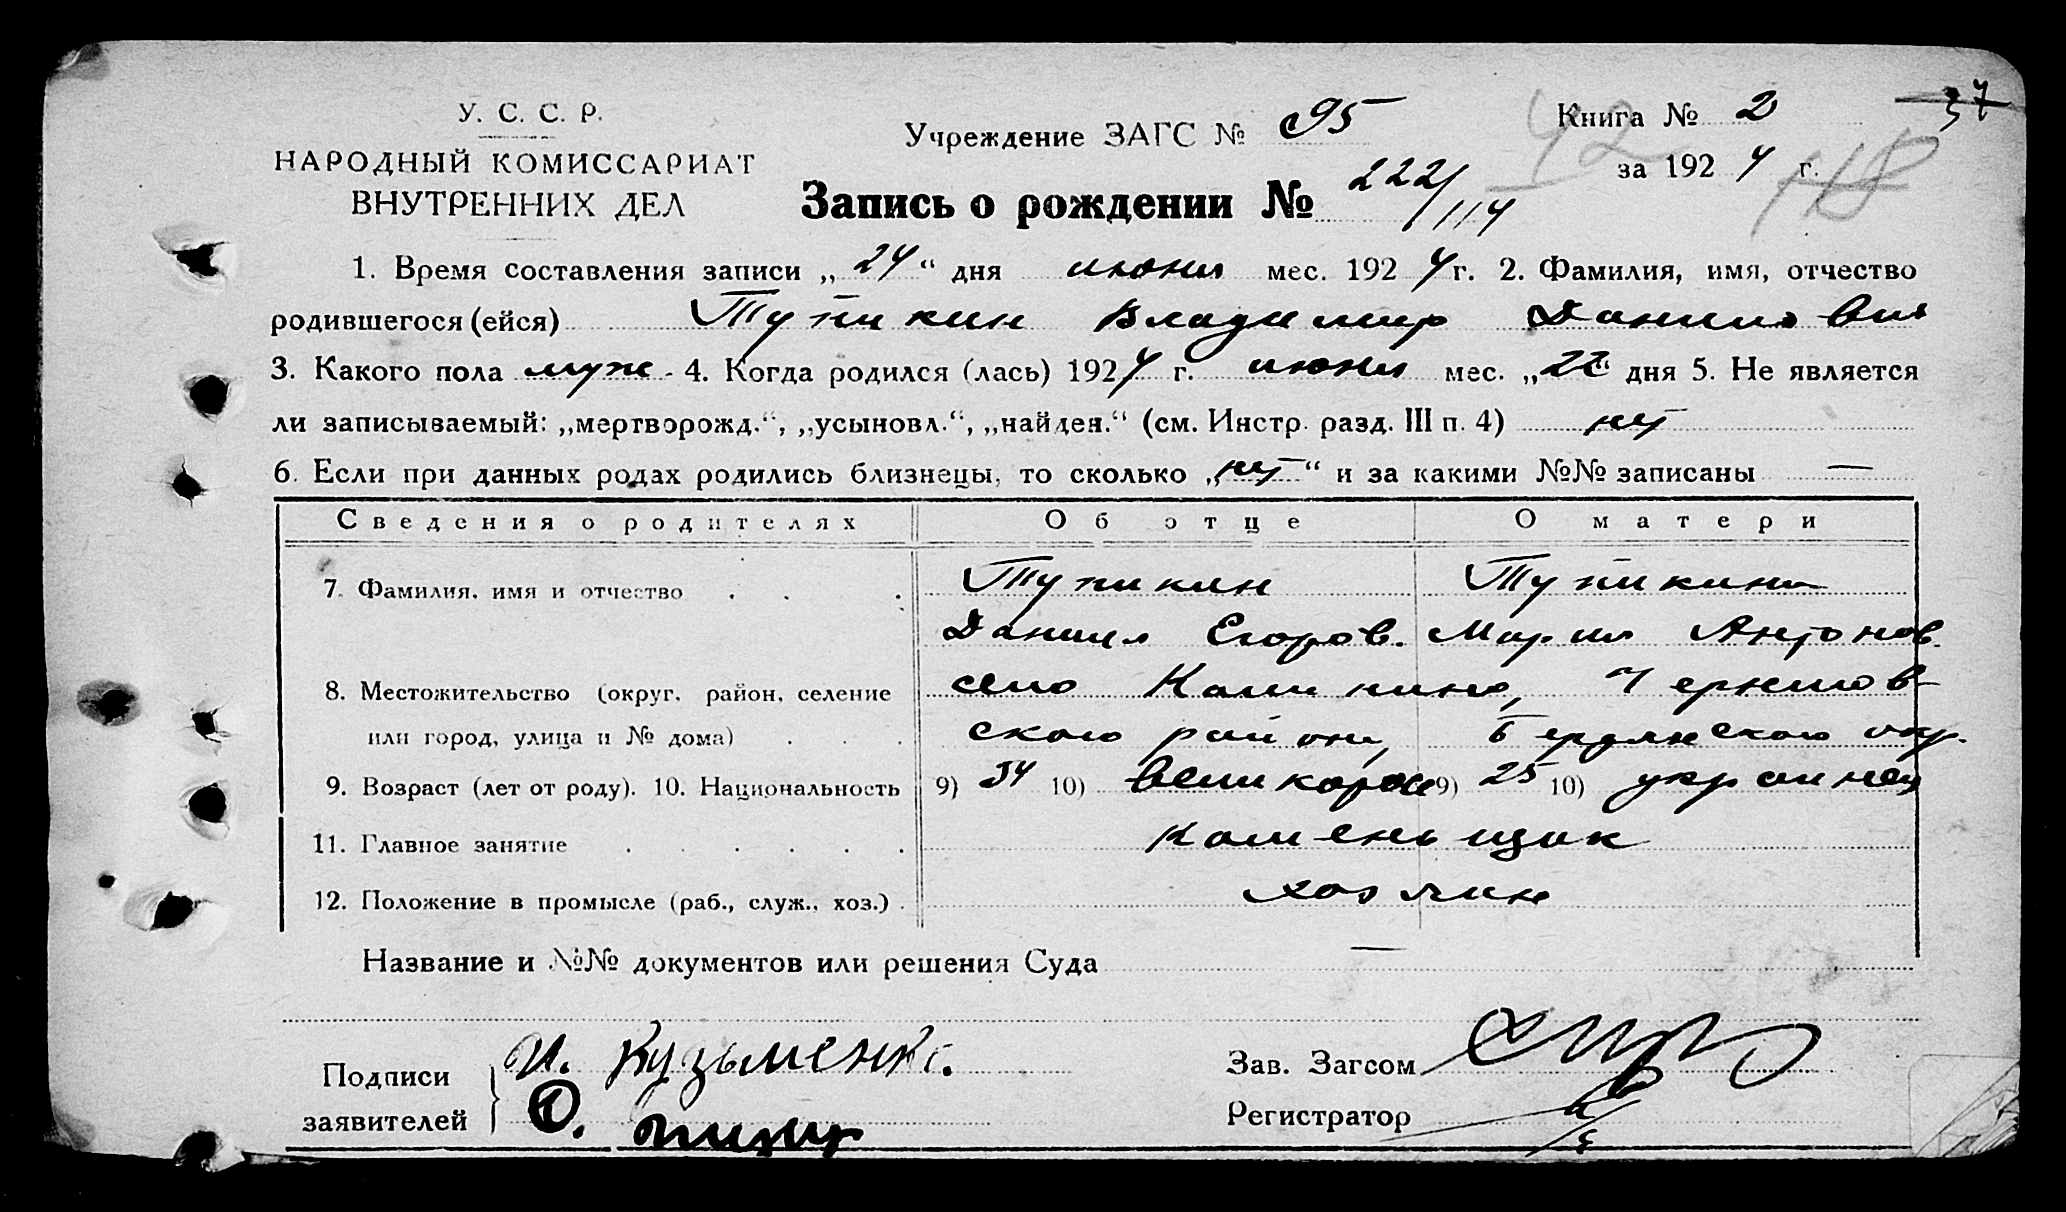 37
У. С. С. Р.
НАРОДНЫЙ КОМИССАРИАТ
ВНУТРЕННИХ ДЕЛ
Учреждение ЗАГС № 95
Книга № 2
42
за 1924 г.
118
Запись о рождении № 222/114
1. Время составления записи „24“ дня июня мес. 1924 г. 2. Фамилия, имя, отчество
родившегося (ейся) Тупикин Владимир Данилович
3. Какого пола муж. 4. Когда родился (лась) 1924 г. июня мес. „22“ дня 5. Не является
ли записываемый: „мертворожд.“, „усыновл.“, „найден.“ (см. Инстр. разд. III п. 4) нет
6. Если при данных родах родились близнецы, то сколько „нет“ и за какими №№ записаны —
Сведения о родителях Об отце О матери
7. Фамилия, имя и отчество Тупикин Тупикина
Даниил Егоров. Мария Антонов.
8. Местожительство (округ, район, селение село Калинино, Чернигов-
или город, улица и № дома) ского района, Бердянского окр.
9. Возраст (лет от роду). 10. Национальность 9) 34 10) великорос 9) 25 10) украинец
11. Главное занятие каменьщик
12. Положение в промысле (раб., служ., хоз.) хозяин
Название и №№ документов или решения Суда —
Подписи И. Кузьменко. Зав. Загсом
заявителей О. Регистратор